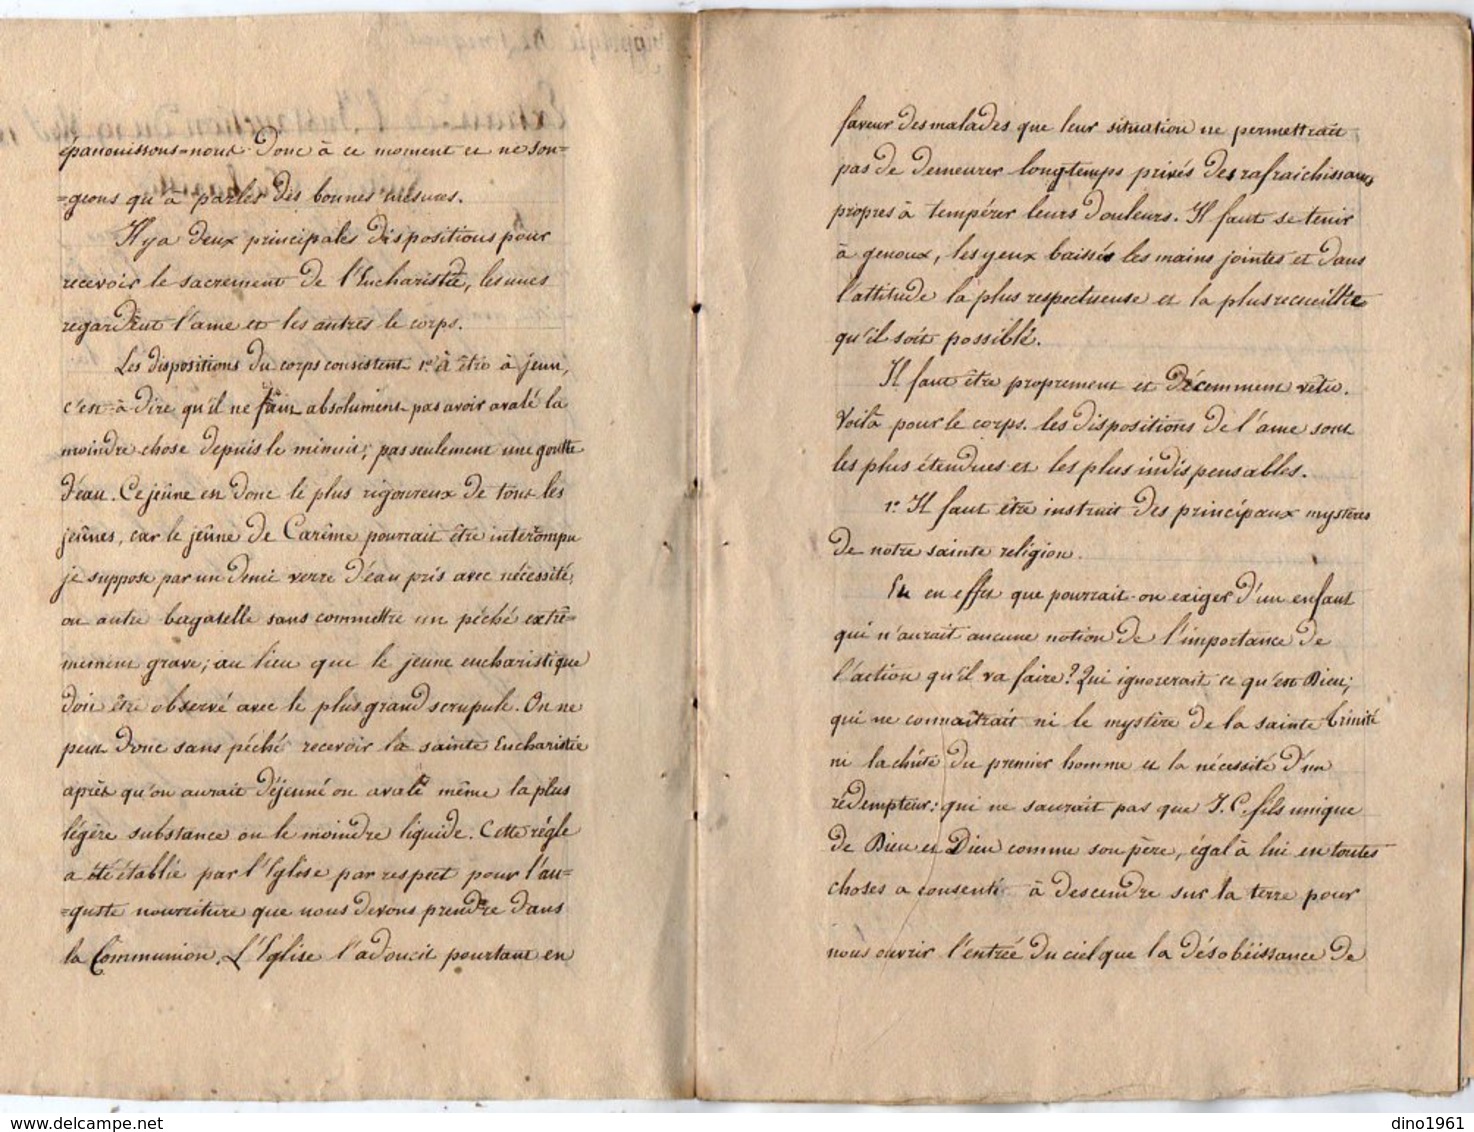 épanouissons=nous donc à ce moment et ne son=
=geons qu'à parler des bonnes mesures.
Il y a deux principales dispositions pour
recevoir le sacrement de l'Eucharistie, les unes
regardent l'ame et les autres le corps.
Les dispositions du corps consistent 1° à être à jeun,
c'est-à-dire qu'il ne faut absolument pas avoir avalé la
moindre chose depuis le minuit, pas seulement une goutte
d'eau. Ce jeûne est donc le plus rigoureux de tous les
jeûnes, car le jeûne de Carême pourrait être interrompu
je suppose par un demi verre d'eau pris avec nécessité,
ou autre bagatelle sans commettre un péché extrê=
mement grave; au lieu que le jeune eucharistique
doit être observé avec le plus grand scrupule. On ne
peut donc sans péché recevoir la sainte Eucharistie
après qu'on aurait déjeuné ou avalé même la plus
légère substance ou le moindre liquide. Cette règle
a été établie par l'Eglise par respect pour l'au=
=guste nourriture que nous devons prendre dans
la Communion. L'Eglise l'adoucit pourtant en
faveur des malades que leur situation ne permettrait
pas de demeurer longtemps privés des rafraichissants
propres à tempérer leurs douleurs. Il faut se tenir
à genoux, les yeux baissés les mains jointes et dans
l'attitude la plus respectueuse et la plus recueillie
qu'il soit possible.
Il faut être proprement et décemment vêtu.
Voilà pour le corps. les dispositions de l'ame sont
les plus étendues et les plus indispensables.
1° Il faut être instruit des principaux mystères
de notre sainte religion.
En effet que pourrait-on exiger d'un enfant
qui n'aurait aucune notion de l'importance de
l'action qu'il va faire? Qui ignorerait ce qu'est Dieu;
qui ne connaîtrait ni le mystère de la sainte trinité
ni la chûte du premier homme et la nécessité d'un
rédempteur: qui ne saurait pas que J. C. fils unique
de Dieu et Dieu comme son père, égal à lui en toutes
choses a consenti à descendre sur la terre pour
nous ouvrir l'entrée du ciel que la désobéissance de
dino1961